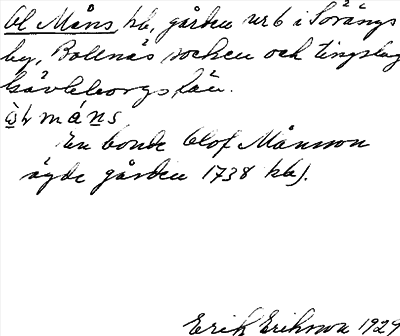 Ol Måns kb, gården nr 6 i Sörängs
by, Bollnäs socken och tingslag
Gävleborgs län.
En bonde Olof Månsson
ägde gården 1738 kb).
Erik Eriksson 1929